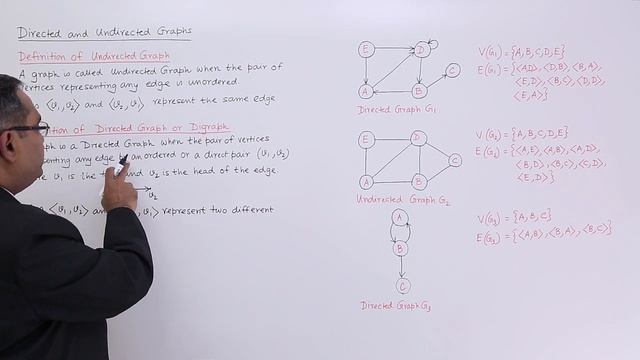 Directed and Undirected Graphs
Definition of Undirected Graph
A graph is called Undirected Graph when the pair of
vertices representing any edge is unordered.
⟨v₁, v₂⟩ and ⟨v₂, v₁⟩ represent the same edge
of Directed Graph or Digraph
is a Directed Graph when the pair of vertices
any edge is an ordered or a direct pair (v₁, v₂)
v₁ is the and v₂ is the head of the edge.
v₂
⟨v₁, v₂⟩ v₁⟩ represent two different
E
D
C
A
B
Directed Graph G₁
V(G₁) = {A, B, C, D, E}
E(G₁) = {⟨A,D⟩, ⟨D,B⟩, ⟨B,A⟩,
⟨E,D⟩, ⟨B,C⟩, ⟨D,D⟩,
⟨E,A⟩}
E
D
C
A
B
Undirected Graph G₂
V(G₂) = {A, B, C, D, E}
E(G₂) = {⟨A,E⟩, ⟨A,B⟩, ⟨A,D⟩,
⟨B,D⟩, ⟨B,C⟩, ⟨C,D⟩,
⟨E,D⟩}
A
B
C
Directed Graph G₃
V(G₃) = {A, B, C}
E(G₃) = {⟨A,B⟩, ⟨B,A⟩, ⟨B,C⟩}